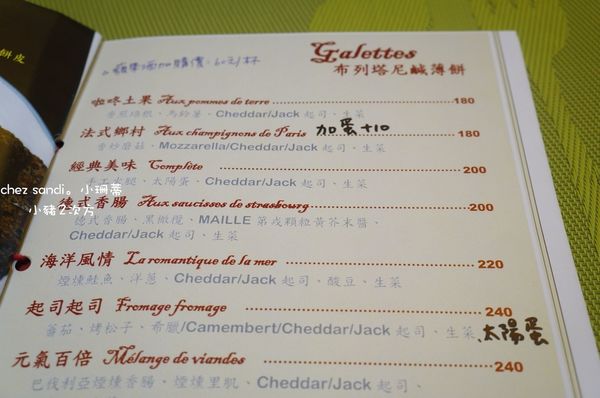 餅皮
。蘋果酒加購價:60元/杯
Galettes
布列塔尼鹹薄餅
啦咚土果 Aux pommes de terre 180
香煎培根、馬鈴薯、Cheddar/Jack 起司、生菜
法式鄉村 Aux champignons de Paris 加蛋+10 180
香炒蘑菇、Mozzarella/Cheddar/Jack 起司、生菜
經典美味 Complète 200
手工火腿、太陽蛋、Cheddar/Jack 起司、生菜
德式香腸 Aux saucisses de strasbourg 200
德式香腸、黑橄欖、MAILLE 第戎顆粒黃芥末醬、
Cheddar/Jack 起司、生菜
海洋風情 La romantique de la mer 220
煙燻鮭魚、洋蔥、Cheddar/Jack 起司、酸豆、生菜
起司起司 Fromage fromage 240
蕃茄、烤松子、希臘/Camembert/Cheddar/Jack 起司、生菜、太陽蛋
元氣百倍 Mélange de viandes 240
巴伐利亞煙燻香腸、煙燻里肌、Cheddar/Jack 起司、
chez sandi。小珊蒂
小豬2次方